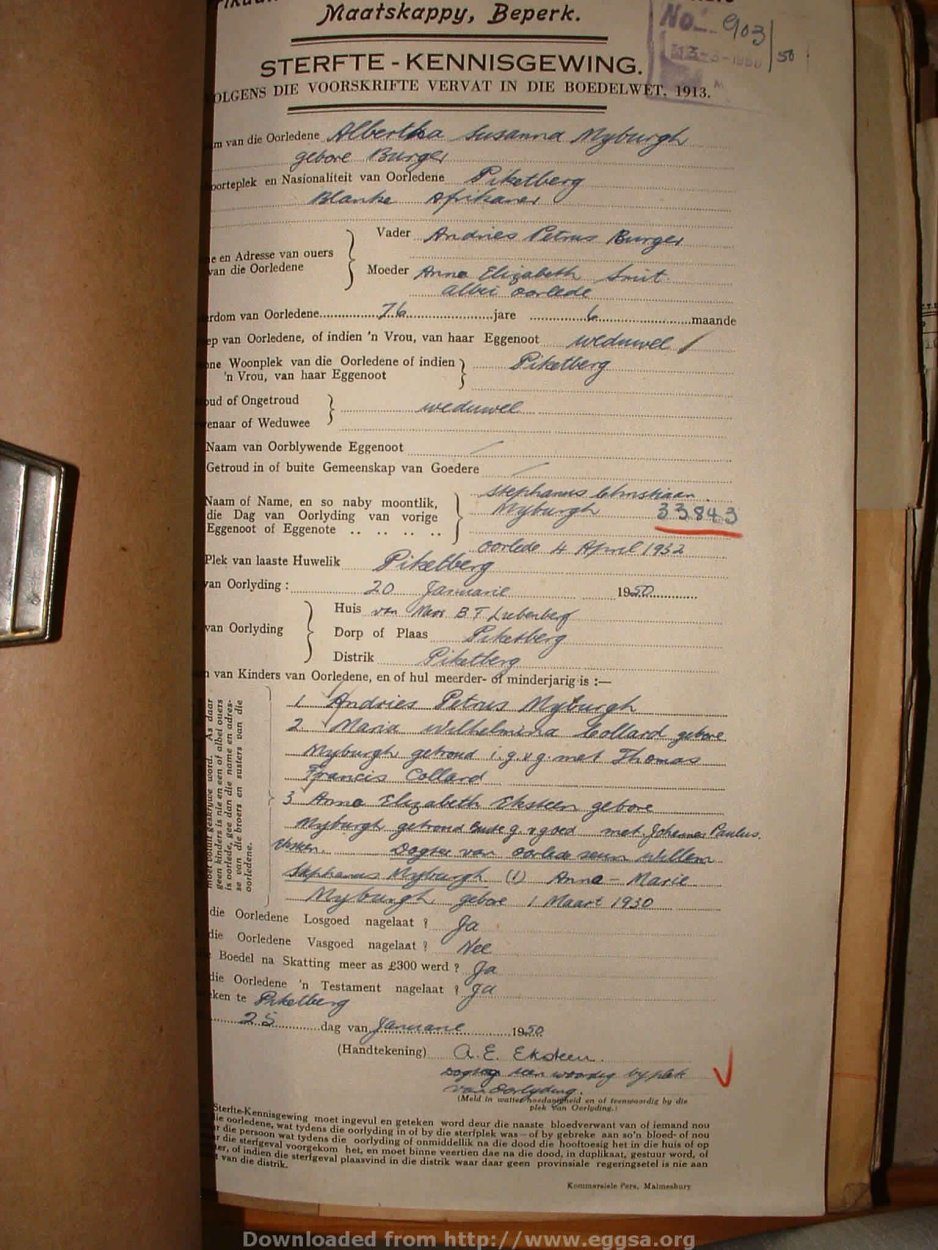 Maatskappy, Beperk.
No. 903/50
STERFTE - KENNISGEWING.
OLGENS DIE VOORSKRIFTE VERVAT IN DIE BOEDELWET, 1913.
m van die Oorledene Albertha Susanna Myburgh
gebore Burger
oorteplek en Nasionaliteit van Oorledene Piketberg
Blanke Afrikaner
Vader Andries Petrus Burger
e en Adresse van ouers
van die Oorledene
Moeder Anna Elizabeth Smit
albei oorlede
erdom van Oorledene 76 jare 6 maande
ep van Oorledene, of indien 'n Vrou, van haar Eggenoot weduwee
one Woonplek van die Oorledene of indien Piketberg
'n Vrou, van haar Eggenoot
oud of Ongetroud
weduwee
enaar of Weduwee
Naam van Oorblywende Eggenoot
Getroud in of buite Gemeenskap van Goedere
Stephanus Christiaan
Naam of Name, en so naby moontlik, Myburgh 33843
die Dag van Oorlyding van vorige
Eggenoot of Eggenote
oorlede 4 April 1932
Plek van laaste Huwelik Piketberg
van Oorlyding : 20 Januarie 1950
Huis van B T
van Oorlyding
Dorp of Plaas Piketberg
Distrik Piketberg
n van Kinders van Oorledene, en of hul meerder- of minderjarig is :—
moet voluit geskrywe word. As daar
geen kinders is nie en een of albei ouers
is oorlede, gee dan die name en adres-
se van die broers en susters van die
oorledene.
1 Andries Petrus Myburgh
2 Maria Wilhelmina Collard gebore
Myburgh getroud i.g.v.g. met Thomas
Francis Collard
3 Anna Elizabeth Eksteen gebore
Myburgh getroud buite g. v goed met Johannes Paulus
Eksteen. Dogter van oorlede seun Willem
Stephanus Myburgh (1) Anna - Marie
Myburgh gebore 1 Maart 1930
die Oorledene Losgoed nagelaat ? Ja
die Oorledene Vasgoed nagelaat ? Nee
Boedel na Skatting meer as £300 werd ? Ja
die Oorledene 'n Testament nagelaat ? Ja
eken te Piketberg
25 dag van Januarie 1950
(Handtekening) A. E. Eksteen.
Dogter teenwoordig by plek
van Oorlyding.
(Meld in watter hoedanigheid en of teenwoordig by die
plek van Oorlyding.)
Sterfte-Kennisgewing moet ingevul en geteken word deur die naaste bloedverwant van of iemand nou
ie oorledene, wat tydens die oorlyding in of by die sterfplek was—of by gebreke aan so'n bloed- of nou
r die persoon wat tydens die oorlyding of onmiddellik na die dood die hooftoesig het in die huis of op
r die sterfgeval voorgekom het, en moet binne veertien dae na die dood, in duplikaat, gestuur word, of
er, of indien die sterfgeval plaasvind in die distrik waar daar geen provinsiale regeringsetel is nie aan
t van die distrik.
Kommersiele Pers, Malmesbury
Downloaded from http://www.eggsa.org